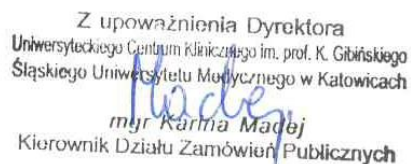 Z upoważnienia Dyrektora
Uniwersyteckiego Centrum Klinicznego im. prof. K. Gibińskiego
Śląskiego Uniwersytetu Medycznego w Katowicach
Madej
mgr Karina Madej
Kierownik Działu Zamówień Publicznych